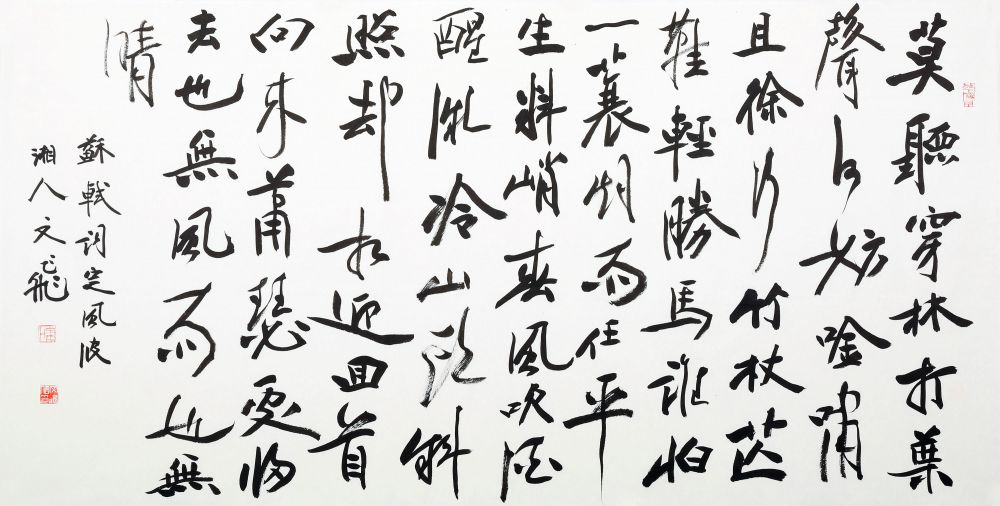 莫聽穿林打葉
聲何妨唫嘯
且徐行竹杖芒
鞋輕勝馬誰怕
一蓑烟雨任平
生料峭春風吹酒
醒微冷山頭斜
照却相迎回首
向來蕭瑟處歸
去也無風雨也無
晴
蘇軾詞定風波
湘人文飛